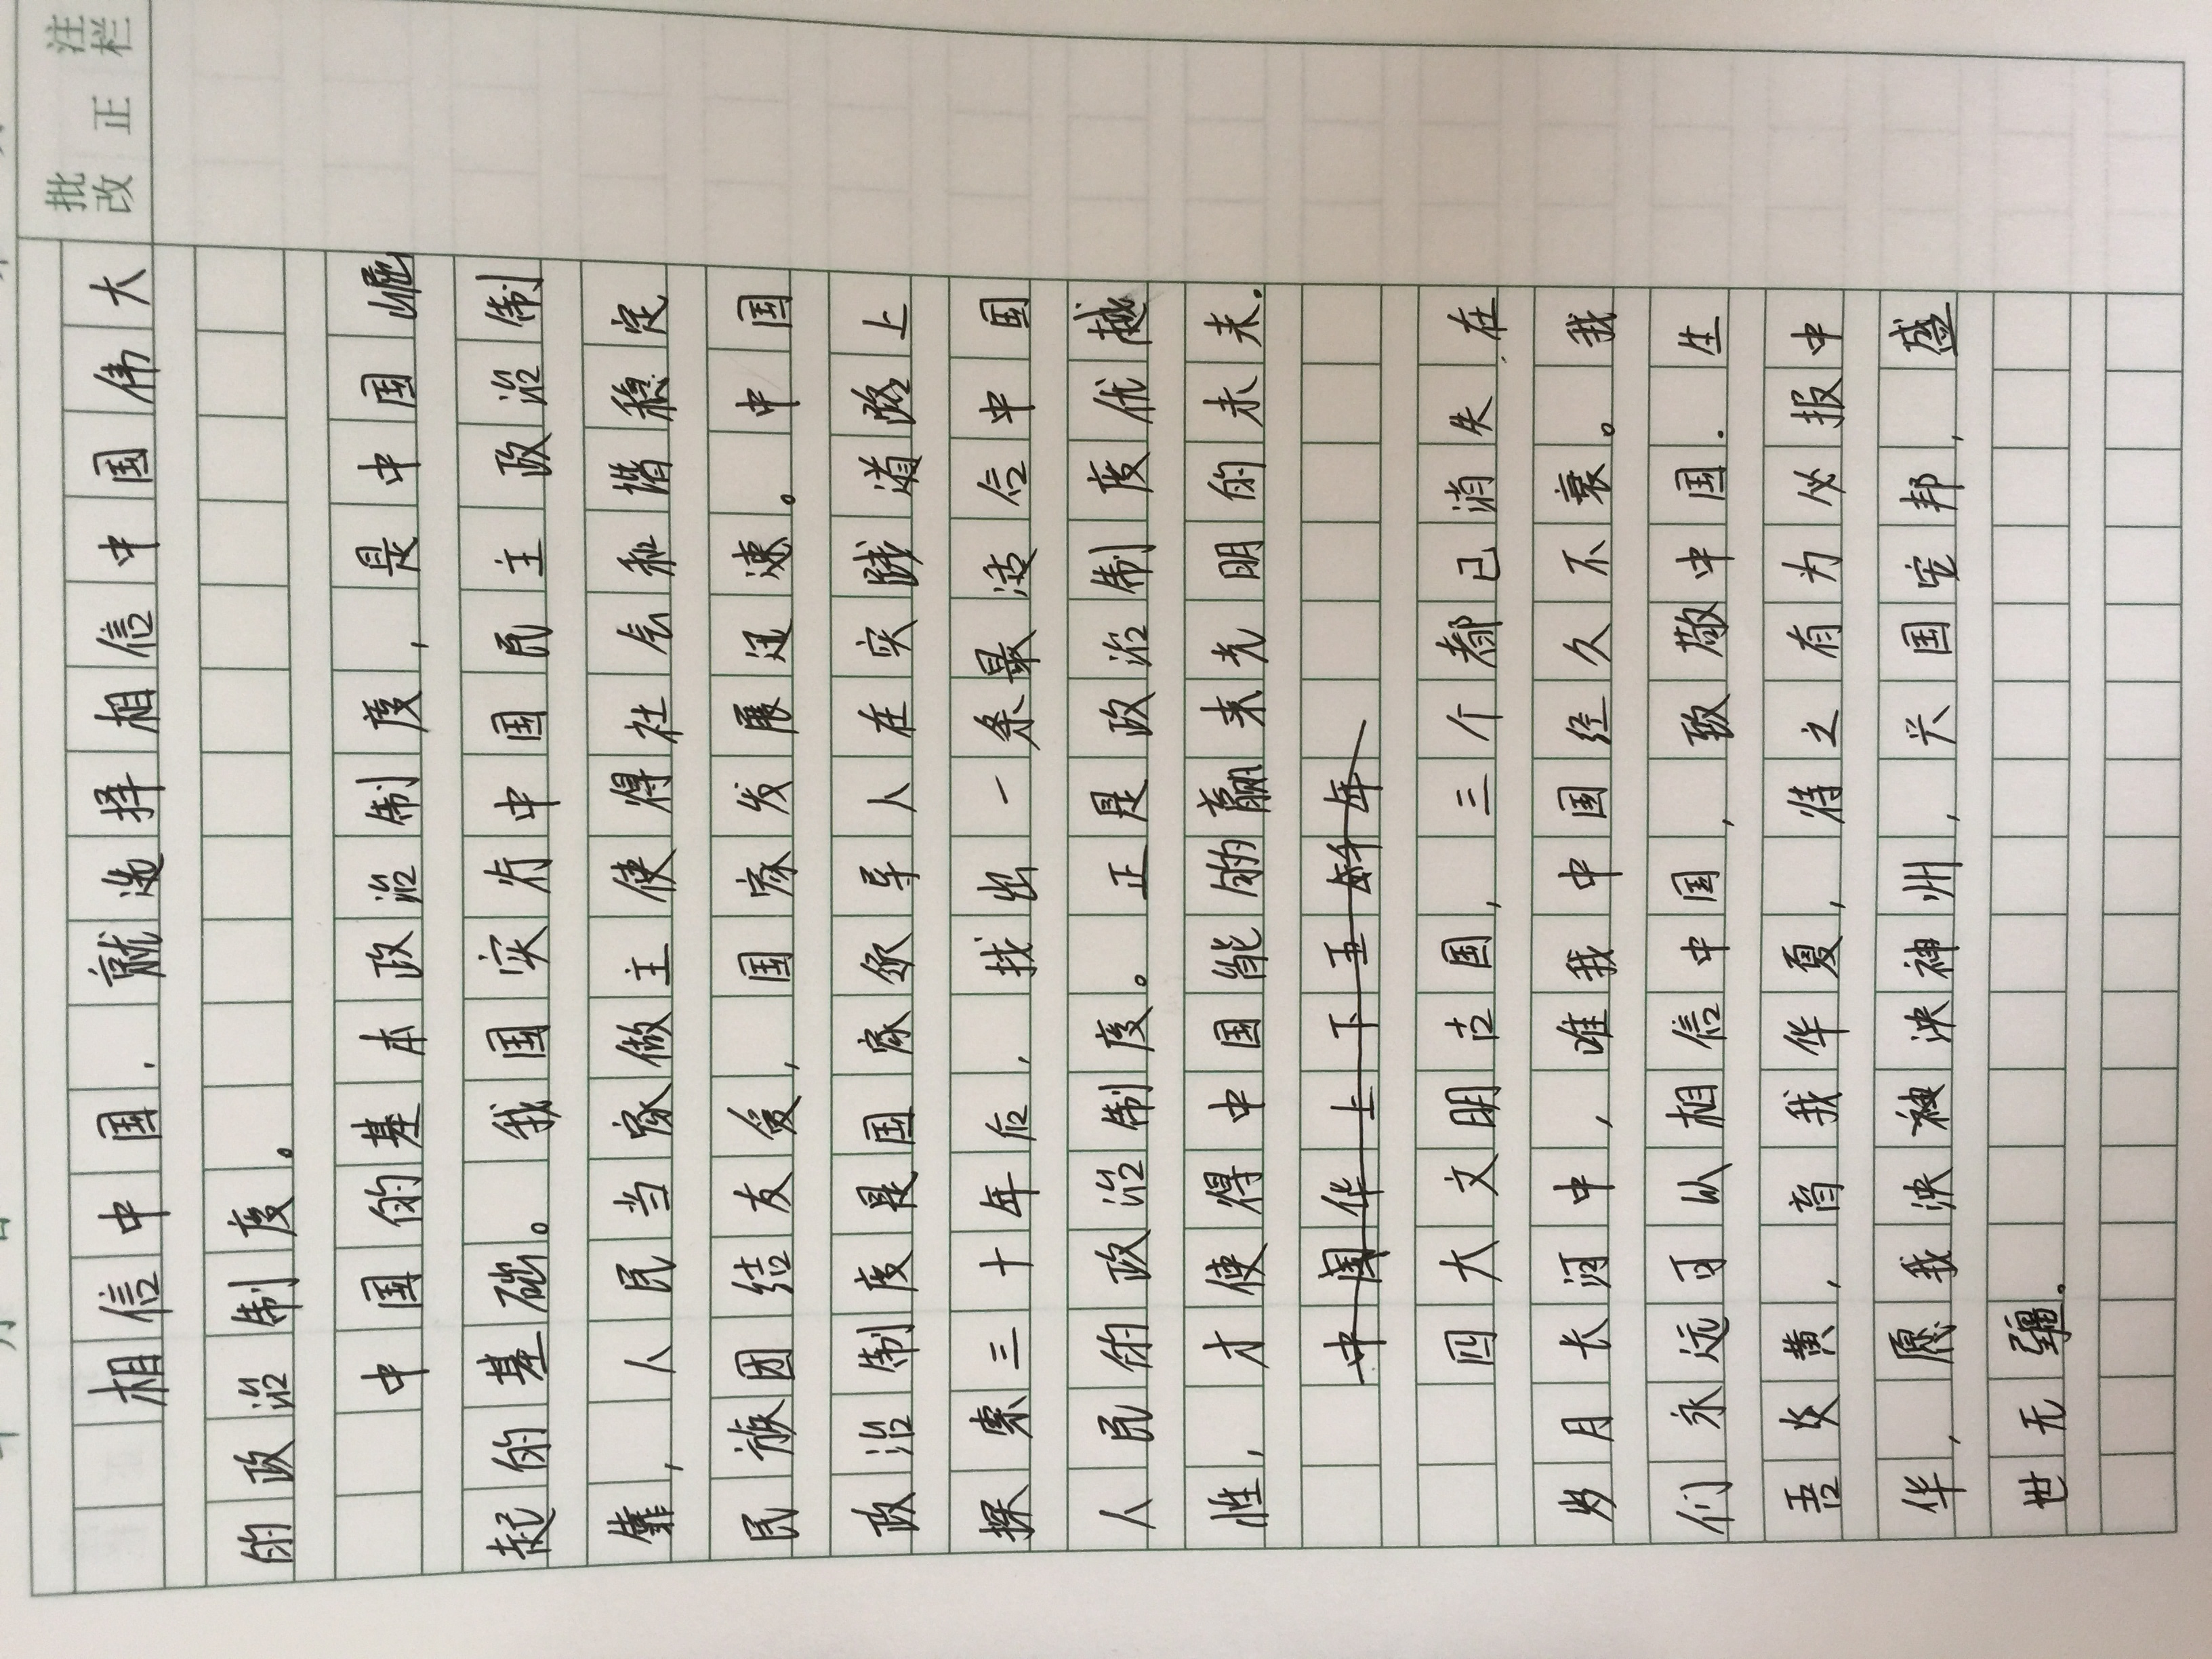 批改 正 注栏
相信中国，就选择相信中国伟大
的政治制度。
中国的基本政治制度，是中国崛
起的基础。我国实行中国民主政治制
，人民当家做主使得社会和谐稳定
民族团结友爱，国家发展迅速。中国
政治制度是国家领导人在实践道路上
探索三十年后，找出一条最适合中国
人民的政治制度。正是政治制度优越
性，才使得中国能够赢来光明的未来.
中国华上下五年
四大文明古国，三个都已消失在
岁月长河中，唯我中国经久不衰。我
们永远可以相信中国，致敬中国.生
吾炎黄，育我华夏，待之有为必报中
华，愿我泱泱神州，兴国安邦，盛
世无疆.